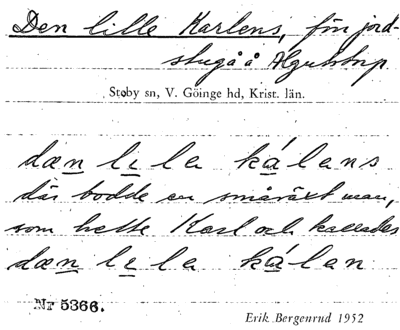 Den lille Karlens, förr jord-
stuga å Algustorp
Stoby sn, V. Göinge hd, Krist. län.
dæn lı la ká lans
där bodde en småväxt man,
som hette Karl och kallades
dæn lı la ká lan
Nr 5366.
Erik Bergenrud 1952